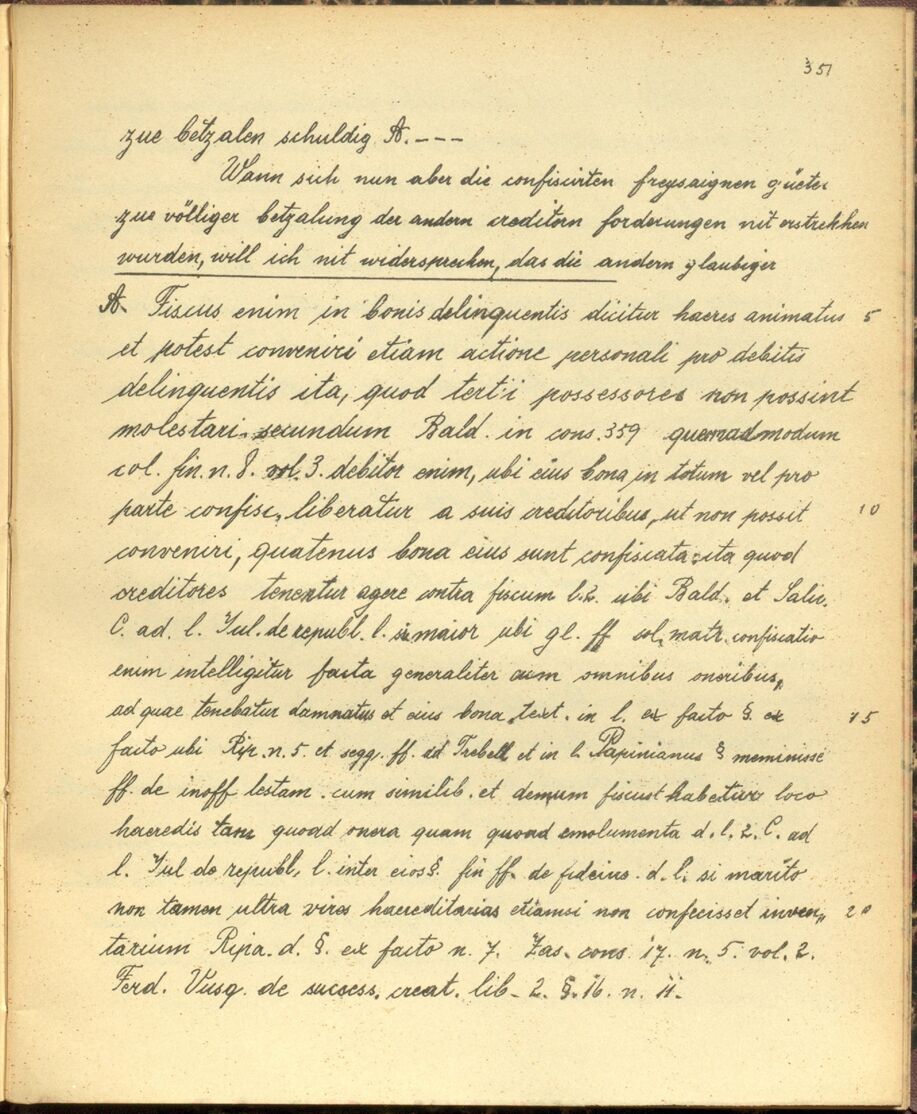 351
zue betzalen schuldig A. ---
Wann sich nun aber die confiscirten freysaignen güeter
zue völliger betzalung der andern creditorn forderungen nit erstrekhen
wurden, will ich nit widersprechen, das die andern glaubiger
A. Fiscus enim in bonis delinquentis dicitur haeres animatus 5
et potest conveniri etiam actione personali pro debitis
delinquentis ita, quod tertii possessores non possint
molestari secundum Bald. in cons. 359 quemadmodum
col. fin. n. 8. vol. 3. debitor enim, ubi eius bona in totum vel pro
parte confisc. liberatur a suis creditoribus, ut non possit 10
conveniri, quatenus bona eius sunt confiscata ita quod
creditores tenentur agere contra fiscum l. 2. ubi Bald. et Salic.
C. ad. l. Iul. de republ. l. si maior ubi gl. ff sol. matr. confiscatio
enim intelligitur facta generaliter cum omnibus oneribus,
ad quae tenebatur damnatus et eius bona, text. in l. ex facto §. ex 15
facto ubi Rip. n. 5. et seqq. ff. ad Trebell et in l. Papinianus § meminisse
ff. de inoff testam. cum similib. et demum fiscus habetur loco
haeredis tam quoad onera quam quoad emolumenta d. l. 2. C. ad
l. Iul de republ, l. inter eios §. fin ff. de fideius. d. l. si marito
non tamen ultra vires haereditarias etiamsi non confecisset inven„ 20
tarium Ripa. d. §. ex facto n. 7. Zas. cons. 17. n. 5. vol. 2.
Ferd. Vusq. de success. creat. lib. 2. §. 16. n. 11.